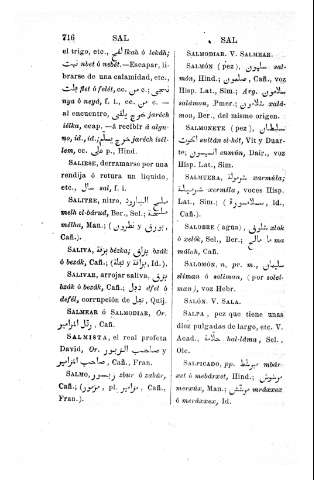 716 SAL
el trigo, etc., لقى lkah ó lekâh;
بت nbet ó nebét.—Escapar, li-
brarse de una calamidad, etc.,
فلت flét ó felét, ec c.;
nya ó neyâ, f. i., ec c. —
al encuentro, خرج يلتقى jaréch
iélka, ecap. — á recibir á algu-
no, id., id.; خرج يسلّم jaréch isél-
lem, ec. على p., Hind.
SALIESE, derramarse por una
rendija ó rotura un líquido,
etc., سال sal, f. i.
SALITRE, nitro, ملح البارود
melh el-bârud, Ber., Sel.;
mélha, Man.; (بورق و نطرون,
Cañ.).
SALIVA, بزقة bézka; بزاق bzâk
ó bezâk, Cañ.; (بزاقة, Id.).
SALIVAR, arrojar saliva, بزق
bzák ó bezák, Cañ.; دفل dfel ó
defél, corrupcion de تفل, Quij.
SALMEAR Ó SALMODIAR, Or.
رتل المزامير, Cañ.
SALMISTA, el real profeta
David, Or. صاحب الزبور y
صاحب المزامير, Cañ., Fran.
SALMO, زبور zbur ó zabûr,
Cañ.; (مزمور, pl. مزامير, Cañ.,
Fran.).
SAL
SALMODIAR. V. SALMEAR.
SALMÓN (pez), سلمون sal-
món, Hind.; صلمون, Cañ., voz
Hisp. Lat., Sim.; Arg.
salâmun, Pmer.;
mun, Ber., del mismo orígen.
SALMONETE (pez), سلطان
الحوت sultân el-hót, Vit y Duar-
te; السمون summún, Dair., voz
Hisp. Lat., Sim.
SALMUERA, شرمولة xarmúla;
شرميلة xermíla, voces Hisp.
Lat., Sim.; (, Id.,
Cañ.).
SALOBRE (agua), زلوق zlok
ó zelók, Sel., Ber.; ما مالح ma
máleh, Cañ.
SALOMÓN, n. pr. m., سليمان
sliman ó soliman, (por solei-
man), voz Hebr.
SALÓN. V. SALA.
SALPA, pez que tiene unas
diez pulgadas de largo, etc. V.
Acad., حلّامة hal-láma, Sel.,
Olc.
SALPICADO, pp. مبرشط mbár-
xet ó mebárxet, Hind.; مرشوش
merxúx, Man.; مرشّش mráxxex
ó meráxxex, Id.